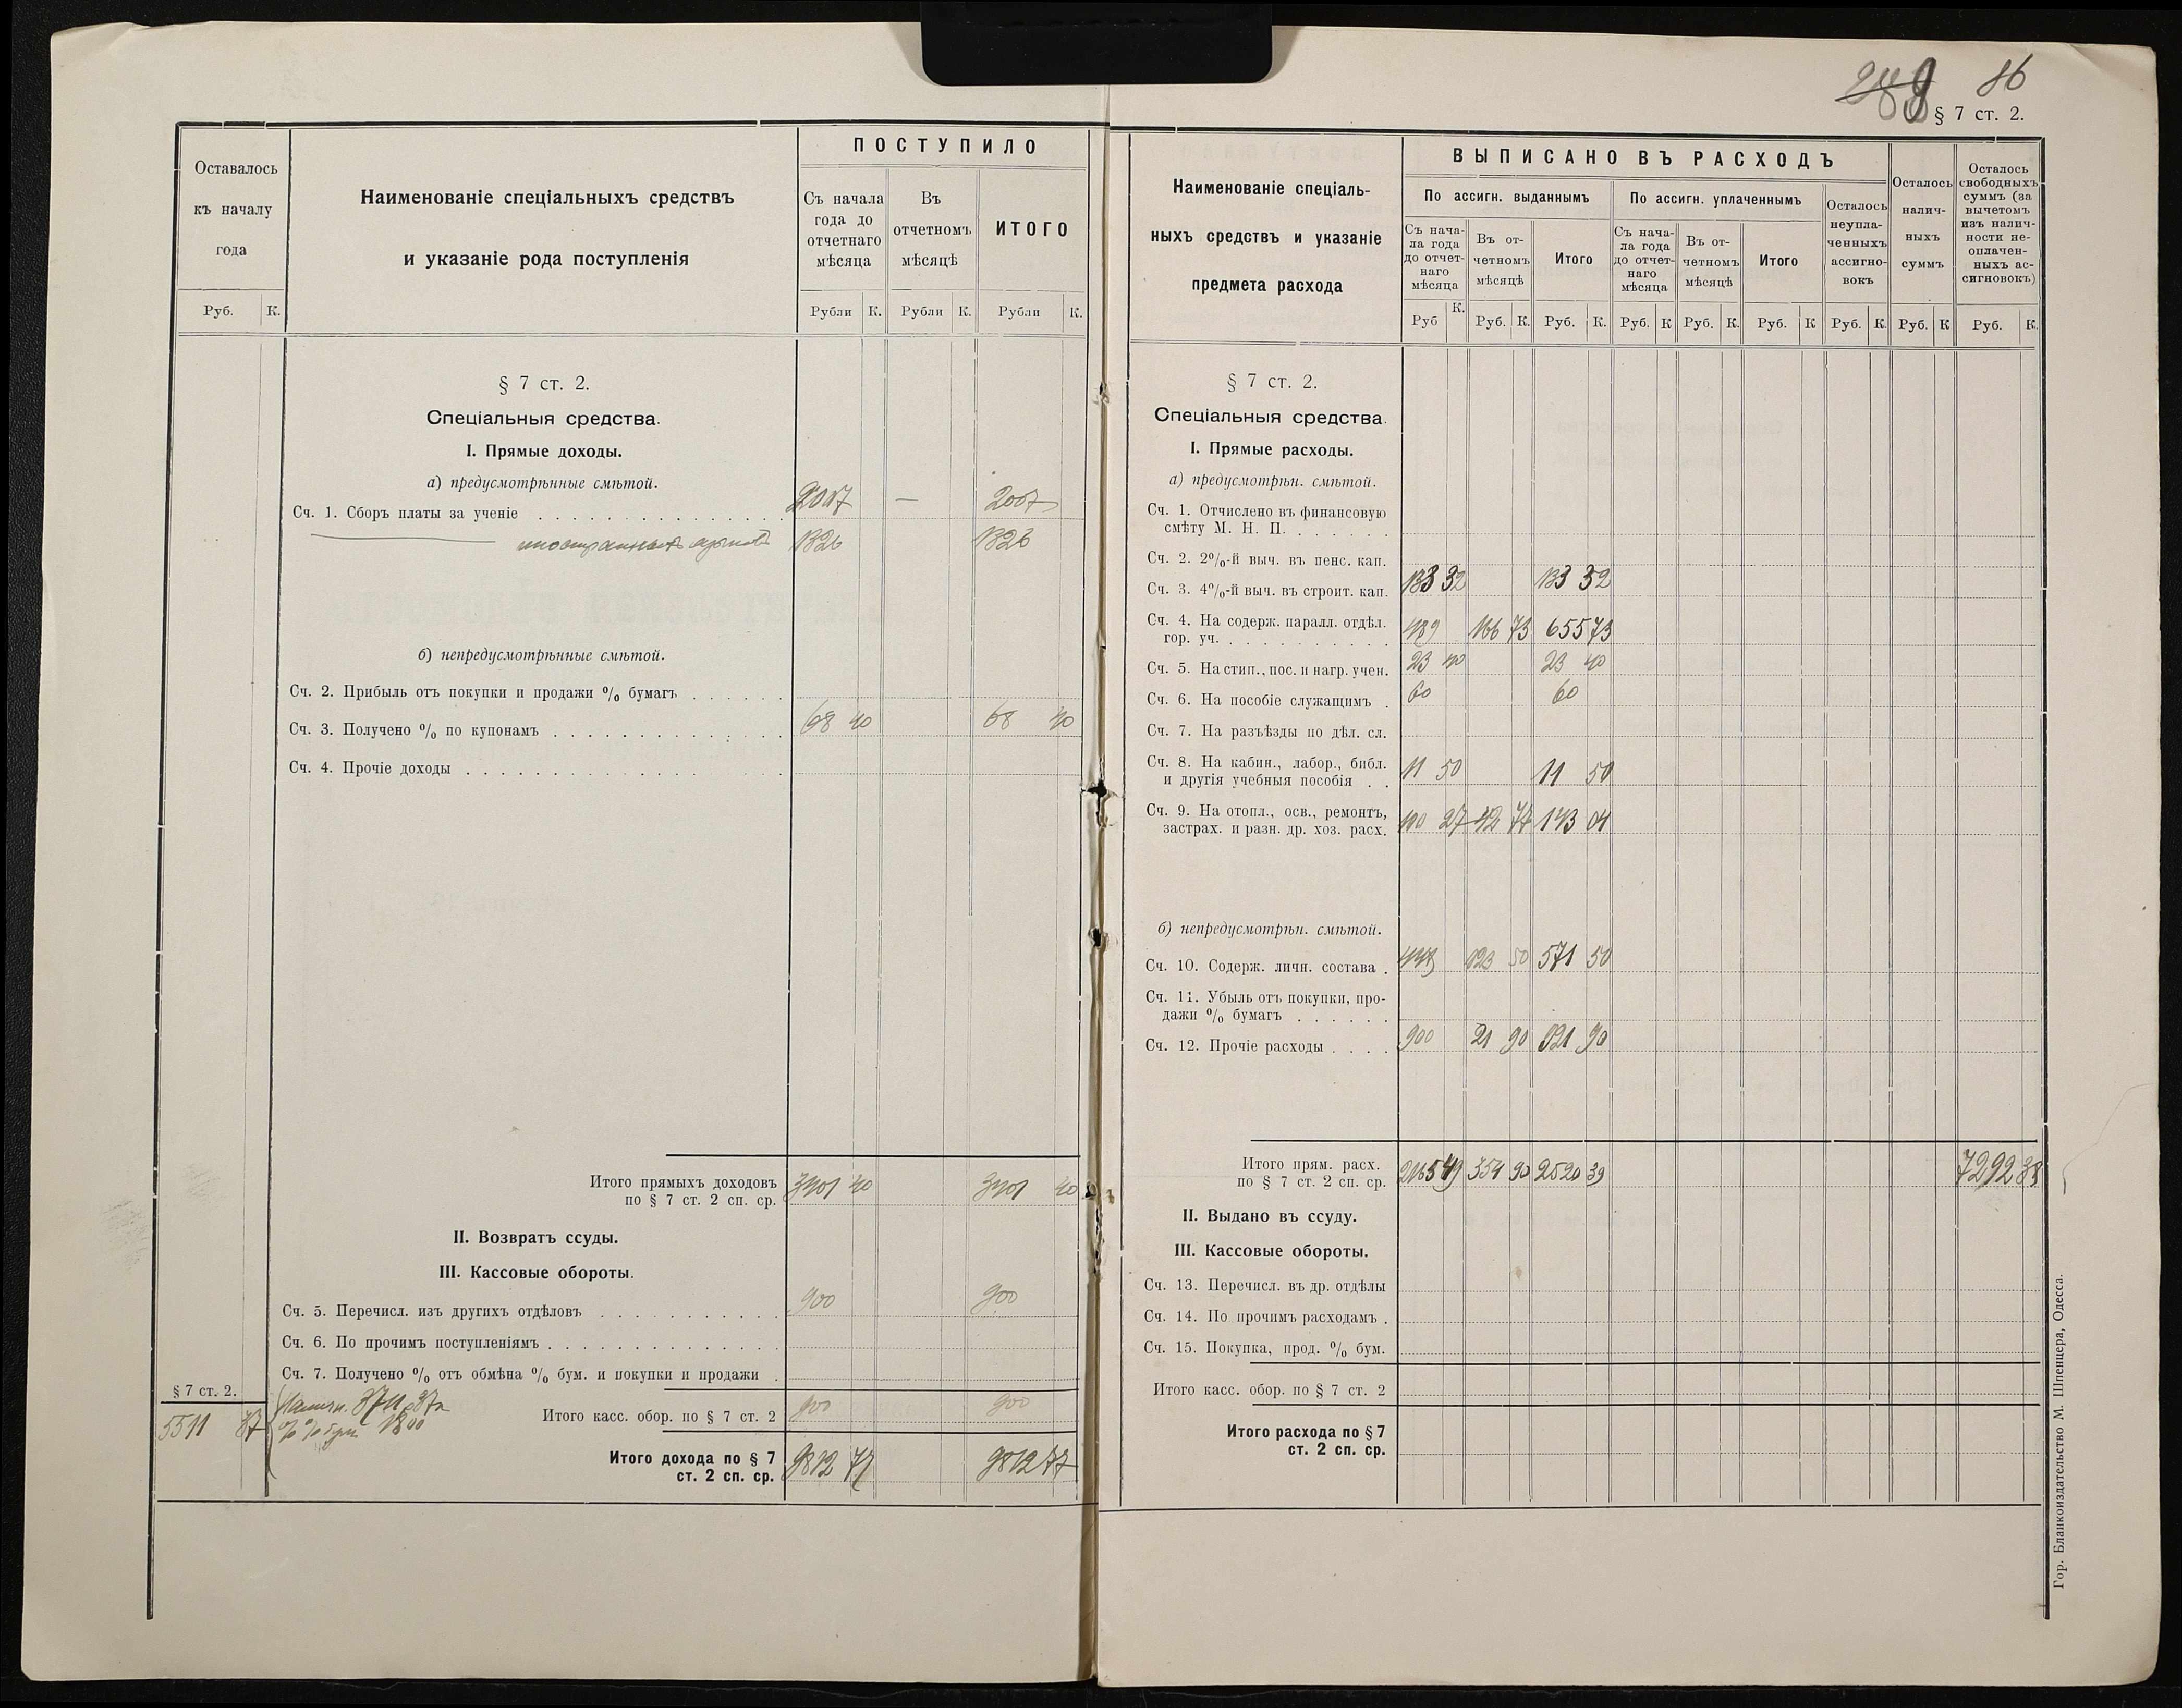 288 9 86
§ 7 ст. 2.
Оставалось къ началу года
Наименованіе спеціальныхъ средствъ и указаніе рода поступленія
ПОСТУПИЛО
Съ начала года до отчетнаго мѣсяца
Въ отчетномъ мѣсяцѣ
ИТОГО
Руб. К. Рубли К. Рубли К. Рубли К.
§ 7 ст. 2.
Спеціальныя средства.
I. Прямые доходы.
а) предусмотрѣнные смѣтой.
Сч. 1. Сборъ платы за ученіе 2007 — 2007
1326 1326
б) непредусмотрѣнные смѣтой.
Сч. 2. Прибыль отъ покупки и продажи % бумагъ
Сч. 3. Получено % по купонамъ 68 40 68 40
Сч. 4. Прочіе доходы
Итого прямыхъ доходовъ
по § 7 ст. 2 сп. ср. 3401 40 3401 40
II. Возвратъ ссуды.
III. Кассовые обороты.
Сч. 5. Перечисл. изъ другихъ отдѣловъ 900 900
Сч. 6. По прочимъ поступленіямъ
Сч. 7. Получено % отъ обмѣна % бум. и покупки и продажи
§ 7 ст. 2.
5511 37 Наличн. 3711 р 37 к
% % бум. 1800
Итого касс. обор. по § 7 ст. 2 900 900
Итого дохода по § 7
ст. 2 сп. ср. 9812 77 9812 77
Наименованіе спеціаль-
ныхъ средствъ и указаніе
предмета расхода
ВЫПИСАНО ВЪ РАСХОДЪ
По ассигн. выданнымъ
По ассигн. уплаченнымъ
Съ нача-
ла года
до отчет-
наго
мѣсяца
Въ от-
четномъ
мѣсяцѣ
Итого
Съ нача-
ла года
до отчет-
наго
мѣсяца
Въ от-
четномъ
мѣсяцѣ
Итого
Осталось
неупла-
ченныхъ
ассигно-
вокъ
Осталось
налич-
ныхъ
суммъ
Осталось
свободныхъ
суммъ (за
вычетомъ
изъ налич-
ности не-
оплачен-
ныхъ ас-
сигновокъ)
Руб К. Руб. К. Руб. К. Руб. К Руб. К. Руб. К Руб. К. Руб. К Руб. К.
§ 7 ст. 2.
Спеціальныя средства.
I. Прямые расходы.
а) предусмотрѣн. смѣтой.
Сч. 1. Отчислено въ финансовую
смѣту М. Н. П.
Сч. 2. 2%-й выч. въ пенс. кап.
Сч. 3. 4%-й выч. въ строит. кап. 133 32 133 32
Сч. 4. На содерж. паралл. отдѣл.
гор. уч. 489 166 73 655 73
Сч. 5. На стип., пос. и нагр. учен. 23 40 23 40
Сч. 6. На пособіе служащимъ 60 60
Сч. 7. На разъѣзды по дѣл. сл.
Сч. 8. На кабин., лабор., библ.
и другія учебныя пособія 11 50 11 50
Сч. 9. На отопл., осв., ремонтъ,
застрах. и разн. др. хоз. расх. 100 27 42 77 143 04
б) непредусмотрѣн. смѣтой.
Сч. 10. Содерж. личн. состава 448 123 50 571 50
Сч. 11. Убыль отъ покупки, про-
дажи % бумагъ
Сч. 12. Прочіе расходы 900 21 90 921 90
Итого прям. расх.
по § 7 ст. 2 сп. ср. 2165 49 354 90 2520 39 7292 38
II. Выдано въ ссуду.
III. Кассовые обороты.
Сч. 13. Перечисл. въ др. отдѣлы
Сч. 14. По прочимъ расходамъ
Сч. 15. Покупка, прод. % бум.
Итого касс. обор. по § 7 ст. 2
Итого расхода по § 7
ст. 2 сп. ср.
Гор. Бланкоиздательство М. Шпенцера, Одесса.